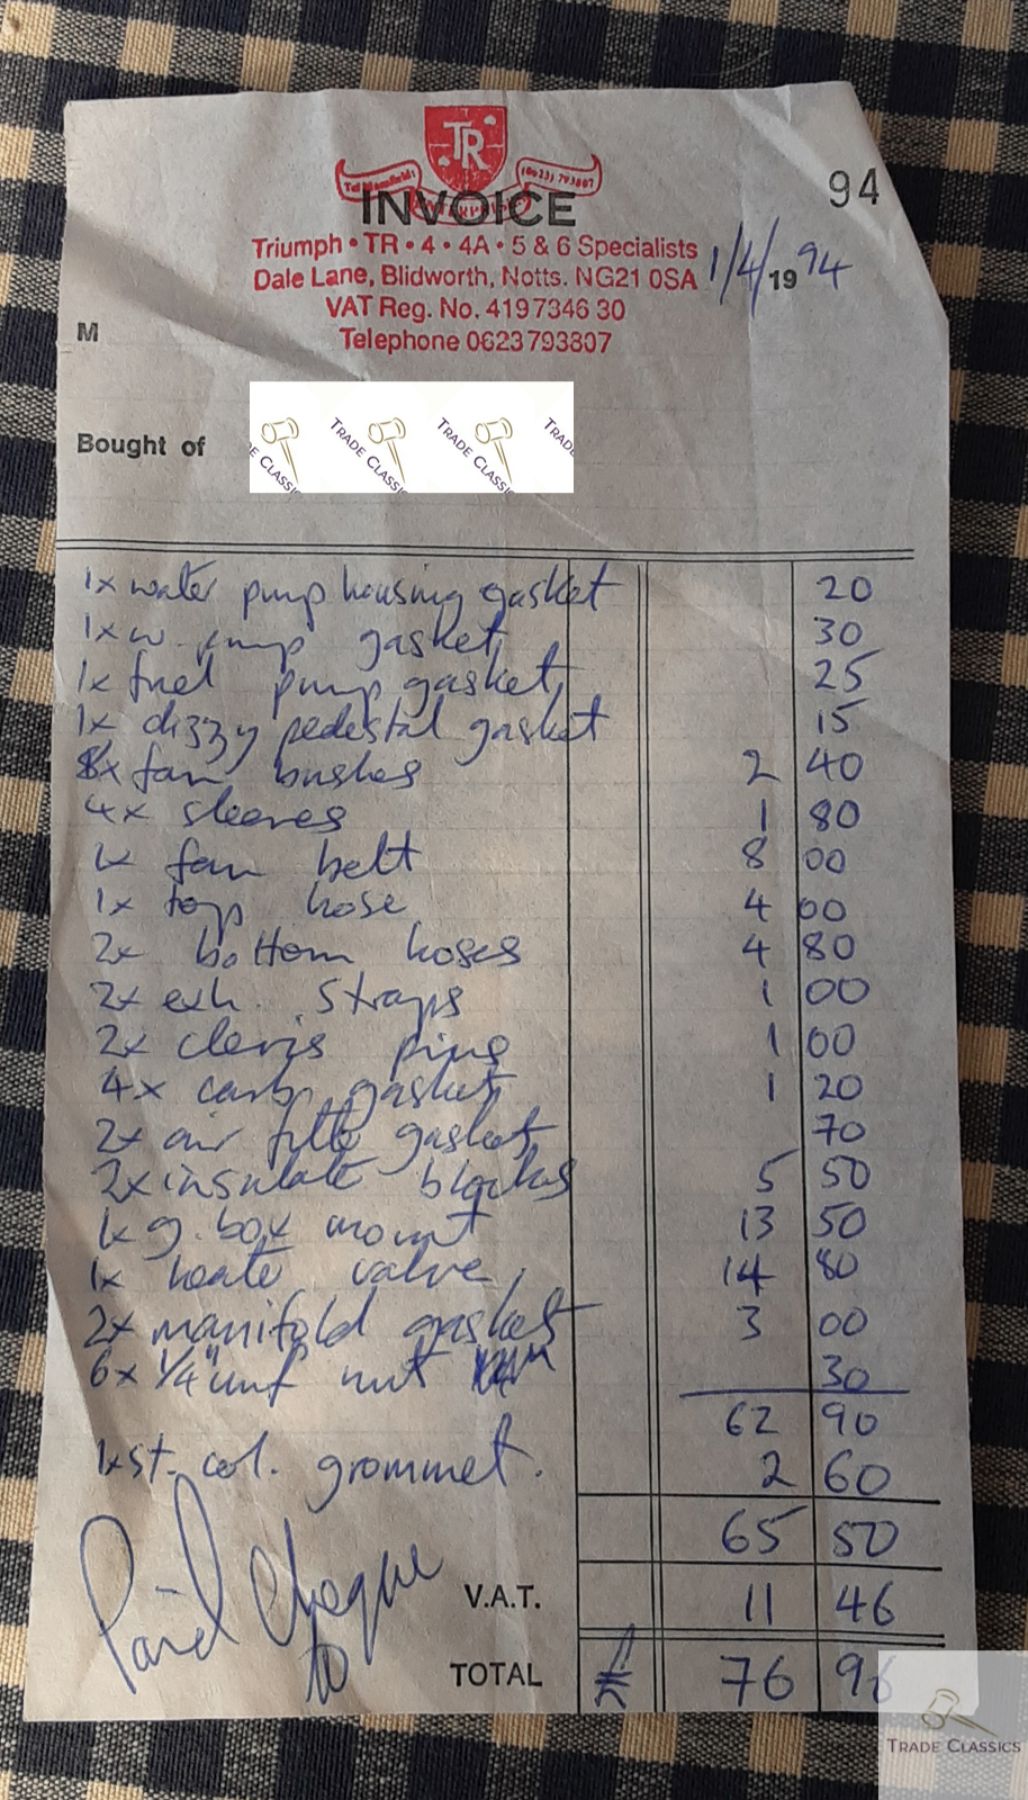 TR
Tel Mansfield: (0623) 793807
ENTERPRISES
INVOICE
94
Triumph • TR • 4 • 4A • 5 & 6 Specialists
1/4/1994
Dale Lane, Blidworth, Notts. NG21 0SA
VAT Reg. No. 419 7346 30
M
Telephone 0623 793807
Bought of
TRADE CLASSICS TRADE CLASSICS TRADE CLASSICS TRADE
1x water pump housing gasket 20
1x w. pump gasket 30
1x fuel pump gasket 25
1x dizzy pedestal gasket 15
8x fan bushes 2 40
4x sleeves 1 80
1x fan belt 8 00
1x top hose 4 00
2x bottom hoses 4 80
2x exh. straps 1 00
2x clevis pins 1 00
4x carb gaskets 1 20
2x air filter gaskets 70
2x insulate blocks 5 50
1x g. box mount 13 50
1x heater valve 14 80
2x manifold gasket 3 00
6x 1/4" unf nut 30
62 90
1x st. col. grommet. 2 60
65 50
Paid Cheque
V.A.T. 11 46
TOTAL £ 76 96
TRADE CLASSICS